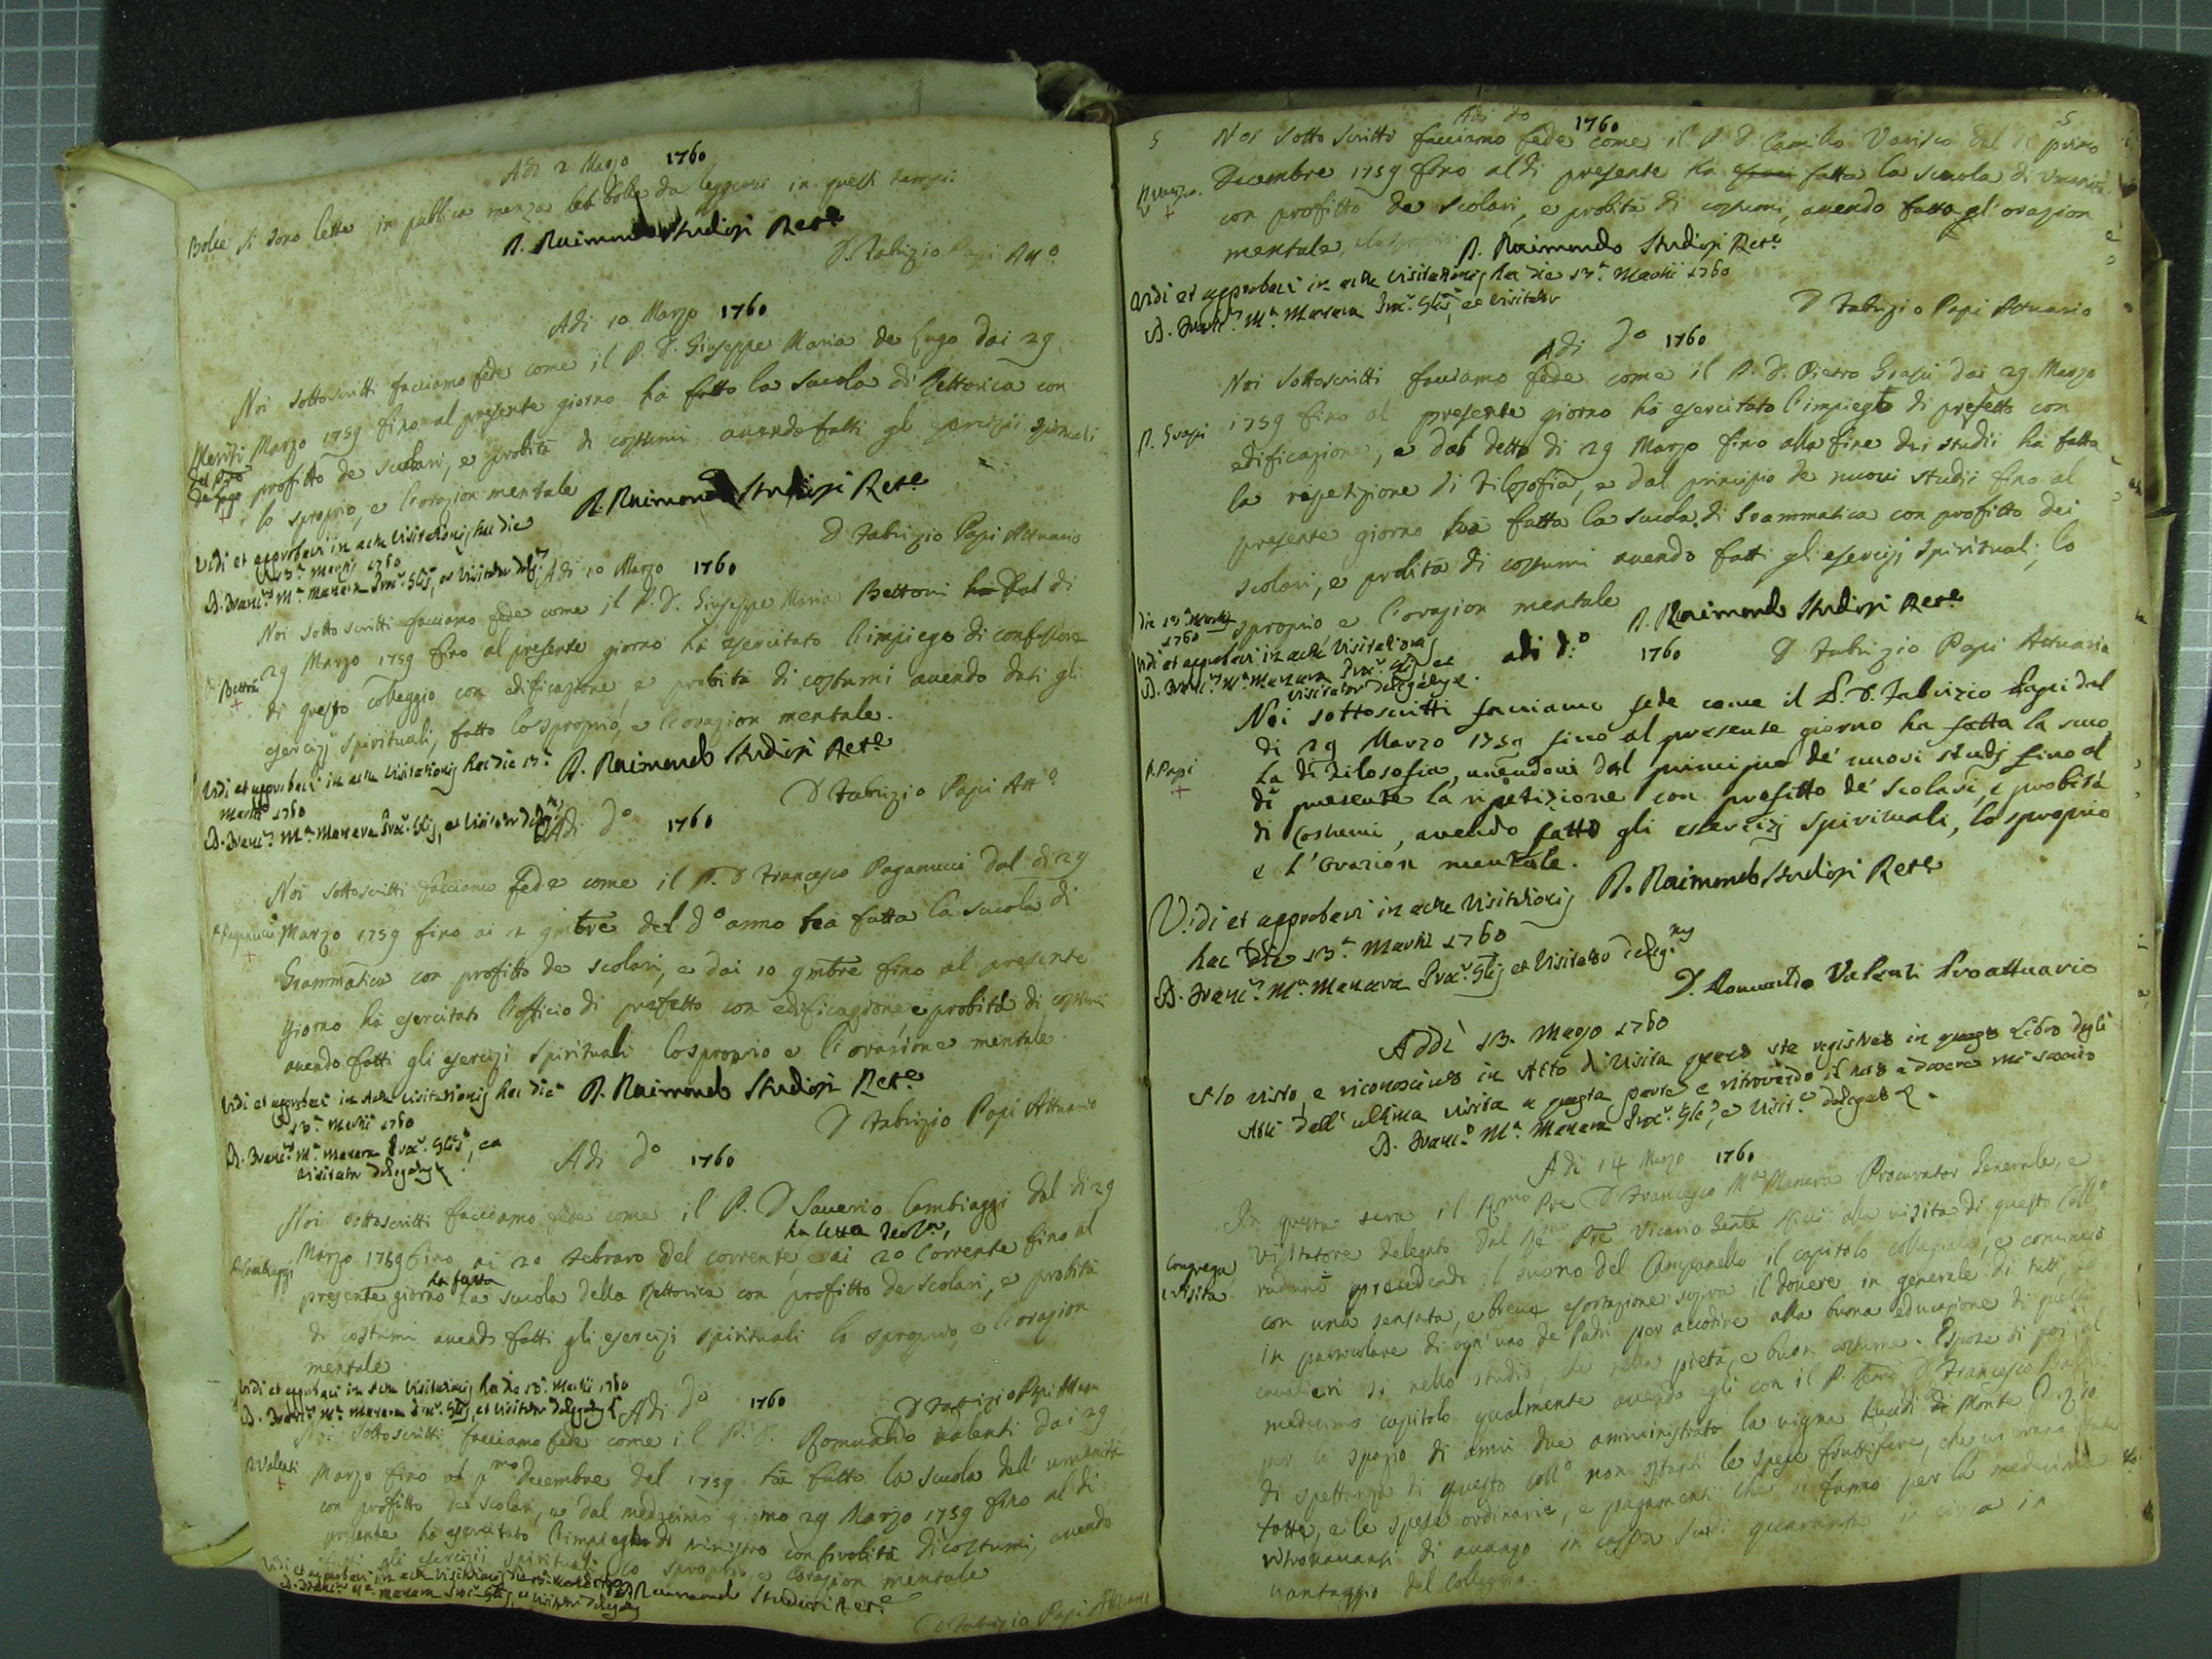 Adi 2 Marzo 1760
Bolle Si sono lette in publica menza le Bolle da leggersi in questi tempi.
D. Raimondo Studiosi Rett.e
D. Fabrizio Papi Att.o
Adi 10 Marzo 1760
Noi sottoscritti facciamo fede come il P. D. Giuseppe Maria de Lugo dai 29
Marzo 1759 fino al presente giorno ha fatto la Scuola di Rettorica con
profitto de scolari, e probità di costumi avendo fatti gl' esercizii spirituali
lo sproprio, e l'orazion mentale D. Raimondo Studiosi Rett.e
Vidi et approbavi in actu Visitationis hac die
13.a Martij 1760
D. Fabrizio Papi Attuario
D. Franc.s M.a Manara Proc.r Glis, et Visitator deleg.s
Adi 10 Marzo 1760
Noi sottoscritti facciamo fede come il P. D. Giuseppe Maria Bettoni ha Dal di
29 Marzo 1759 fino al presente giorno ha esercitato l'impiego di confessore
di questo colleggio con edificazione e probità di costumi avendo dati gli
esercizj spirituali, fatto lo sproprio, e l'orazion mentale.
Vidi et approbavi in actu Visitationis hac die 13.a D. Raimondo Studiosi Rett.e
Martii 1760
D. Fabrizio Papi Att.o
D. Franc.s M.a Manara Proc.r Glis, et Visitator deleg.s
Adi d.o 1760
Noi sottoscritti facciamo fede come il P. D. Francesco Paganucci dal di 29
P. Paganucci Marzo 1759 fino ai 2 9mbre del d.o anno ha fatta la scuola di
Grammatica con profitto de scolari, e dai 10 9mbre fino al presente
giorno ha esercitato l'officio di prefetto con edificazione e probità di costumi
avendo fatti gli esercizj spirituali lo sproprio e l'orazione mentale
Vidi et approbavi in actu Visitationis hac die D. Raimondo Studiosi Rett.e
13.a Martii 1760
D. Fabrizio Papi Attuario
D. Franc.s M.a Manara Proc.r Glis, et
Visitator delegatus
Adi d.o 1760
Noi sottoscritti facciamo fede come il P. D. Saverio Cambiaggi dal di 29
ha letta
P. Cambiaggi Marzo 1759 fino ai 20 Febraro del corrente, e dai 20 Corrente fino al
ha fatta
presente giorno La scuola della Rettorica con profitto de scolari, e probità
di costumi avendo fatti gli esercizj spirituali lo sproprio, e l'orazion
mentale
Vidi et approbavi in actu Visitationis hac die 13.a Martii 1760
D. Fabrizio Papi Attuario
D. Franc.s M.a Manara Proc.r Glis, et Visitator delegatus
Adi d.o 1760
Noi sottoscritti facciamo fede come il P. D. Romualdo Valenti dai 29
P. Valenti Marzo fino al p.mo Decembre del 1759 ha fatto la scuola dell' umanità
con profitto de scolari, e dal medesimo giorno 29 Marzo 1759 fino al di
presente ha esercitato l'impiegho di Ministro con probità di costumi, avendo
fatti gli esercizii spirituali lo sproprio, e l'orazion mentale
Vidi et approbavi in actu Visitationis
D. Raimondo Studiosi Rett.e
D. Franc.s M.a Manara Proc.r Glis, et Visitator delegatus
D. Fabrizio Papi Attuario
5
Adi d.o 1760
5 Noi sotto scritti facciamo fede come il P. D. Camillo Varisco dal primo
Decembre 1759 fino al di presente ha fatta la scuola di Umanità
con profitto de scolari, e probità di costumi, avendo fatto gl'orazion
mentale, D. Raimondo Studiosi Rett.e
Vidi et approbavi in actu Visitationis hac die 13.a Martii 1760
D. Franc.s M.a Manara Proc.r Glis, et Visitator
D Fabrizio Papi Attuario
Adi d.o 1760
Noi sottoscritti facciamo fede come il P. D. Pietro Grapi dai 29 Marzo
P. Grapi 1759 fino al presente giorno ha esercitato l'impiego di prefetto con
edificazione, e dal detto di 29 Marzo fino alla fine dei studii ha fatta
la ripetizione di Filosofia, e dal principio de nuovi studii fino al
presente giorno ha fatta la scuola di Grammatica con profitto dei
scolari, e probità di costumi avendo fatti gli esercizj spirituali, lo
sproprio e l'orazion mentale D. Raimondo Studiosi Rett.e
Die 13.a Martij
1760
Vidi et approbavi in actu Visitationis
D. Franc.s M.a Manara Proc.r Glis et
Visitator delegatus.
D Fabrizio Papi Attuario
adi d.o 1760
Noi sottoscritti facciamo fede come il P. D. Fabrizio Papi dal
di 29 Marzo 1759 fino al presente giorno ha fatta la scuo
P. Papi la di Filosofia, avendovi dal principio de' nuovi studj fino al
di presente la ripetizione con profitto de' scolari, e probità
di costumi, avendo fatto gli esercizj spirituali, lo sproprio
e l'orazion mentale.
Vidi et approbavi in actu Visitationis D. Raimondo Studiosi Rett.e
hac die 13.a Martii 1760
D. Franc.s M.a Manara Proc.r Glis et Visitator deleg.s
D. Romualdo Valenti Proattuario
Addì 13. Marzo 1760
Hò visto, e riconosciuto in Atto di Visita quanto sta registrato in questo Libro degli
Atti dell' ultima visita a questa parte e ritrovando il tutto a dovere mi soscrivo
D. Franc.o M.a Manara Proc.r Gle, e Visit.e delegato
Adi 14 Marzo 1760
In questa sera il R.mo Pre D Francesco M.a Manara Procurator Generale, e
Congrega Visitatore delegato dal Pre Vicario alla visita di questo Coll.o
Visita radunò precedendo il suono del Campanello il capitolo collegiale, e cominciò
con una sensata, e breve esortazione sopra il dovere in generale di tutti, ed
in particolare di ogn' uno de Padri per accudire alla buona educazione di questi
cavalieri si nello studio, che nella pietà, e buon costume. Espose di poi al
medesimo capitolo qualmente avendo egli con il P. D Francesco
per lo spazio di anni due amministrato la vigna di Monte
di spettanza di questo Coll.o non ostanti le spese fruttifere, che vi erano state
fatte, e le spese ordinarie, e pagamenti che si fanno per la medesima
ritrovavansi di avanzo in cassa scudi quaranta in circa in
vantaggio del Colleggio.